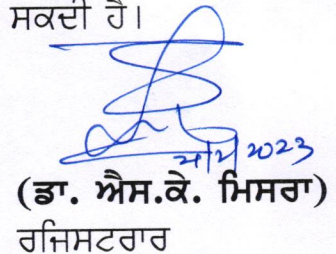 ਸਕਦੀ ਹੈ।
2023
(ਡਾ. ਐਸ.ਕੇ. ਮਿਸਰਾ)
ਰਜਿਸਟਰਾਰ